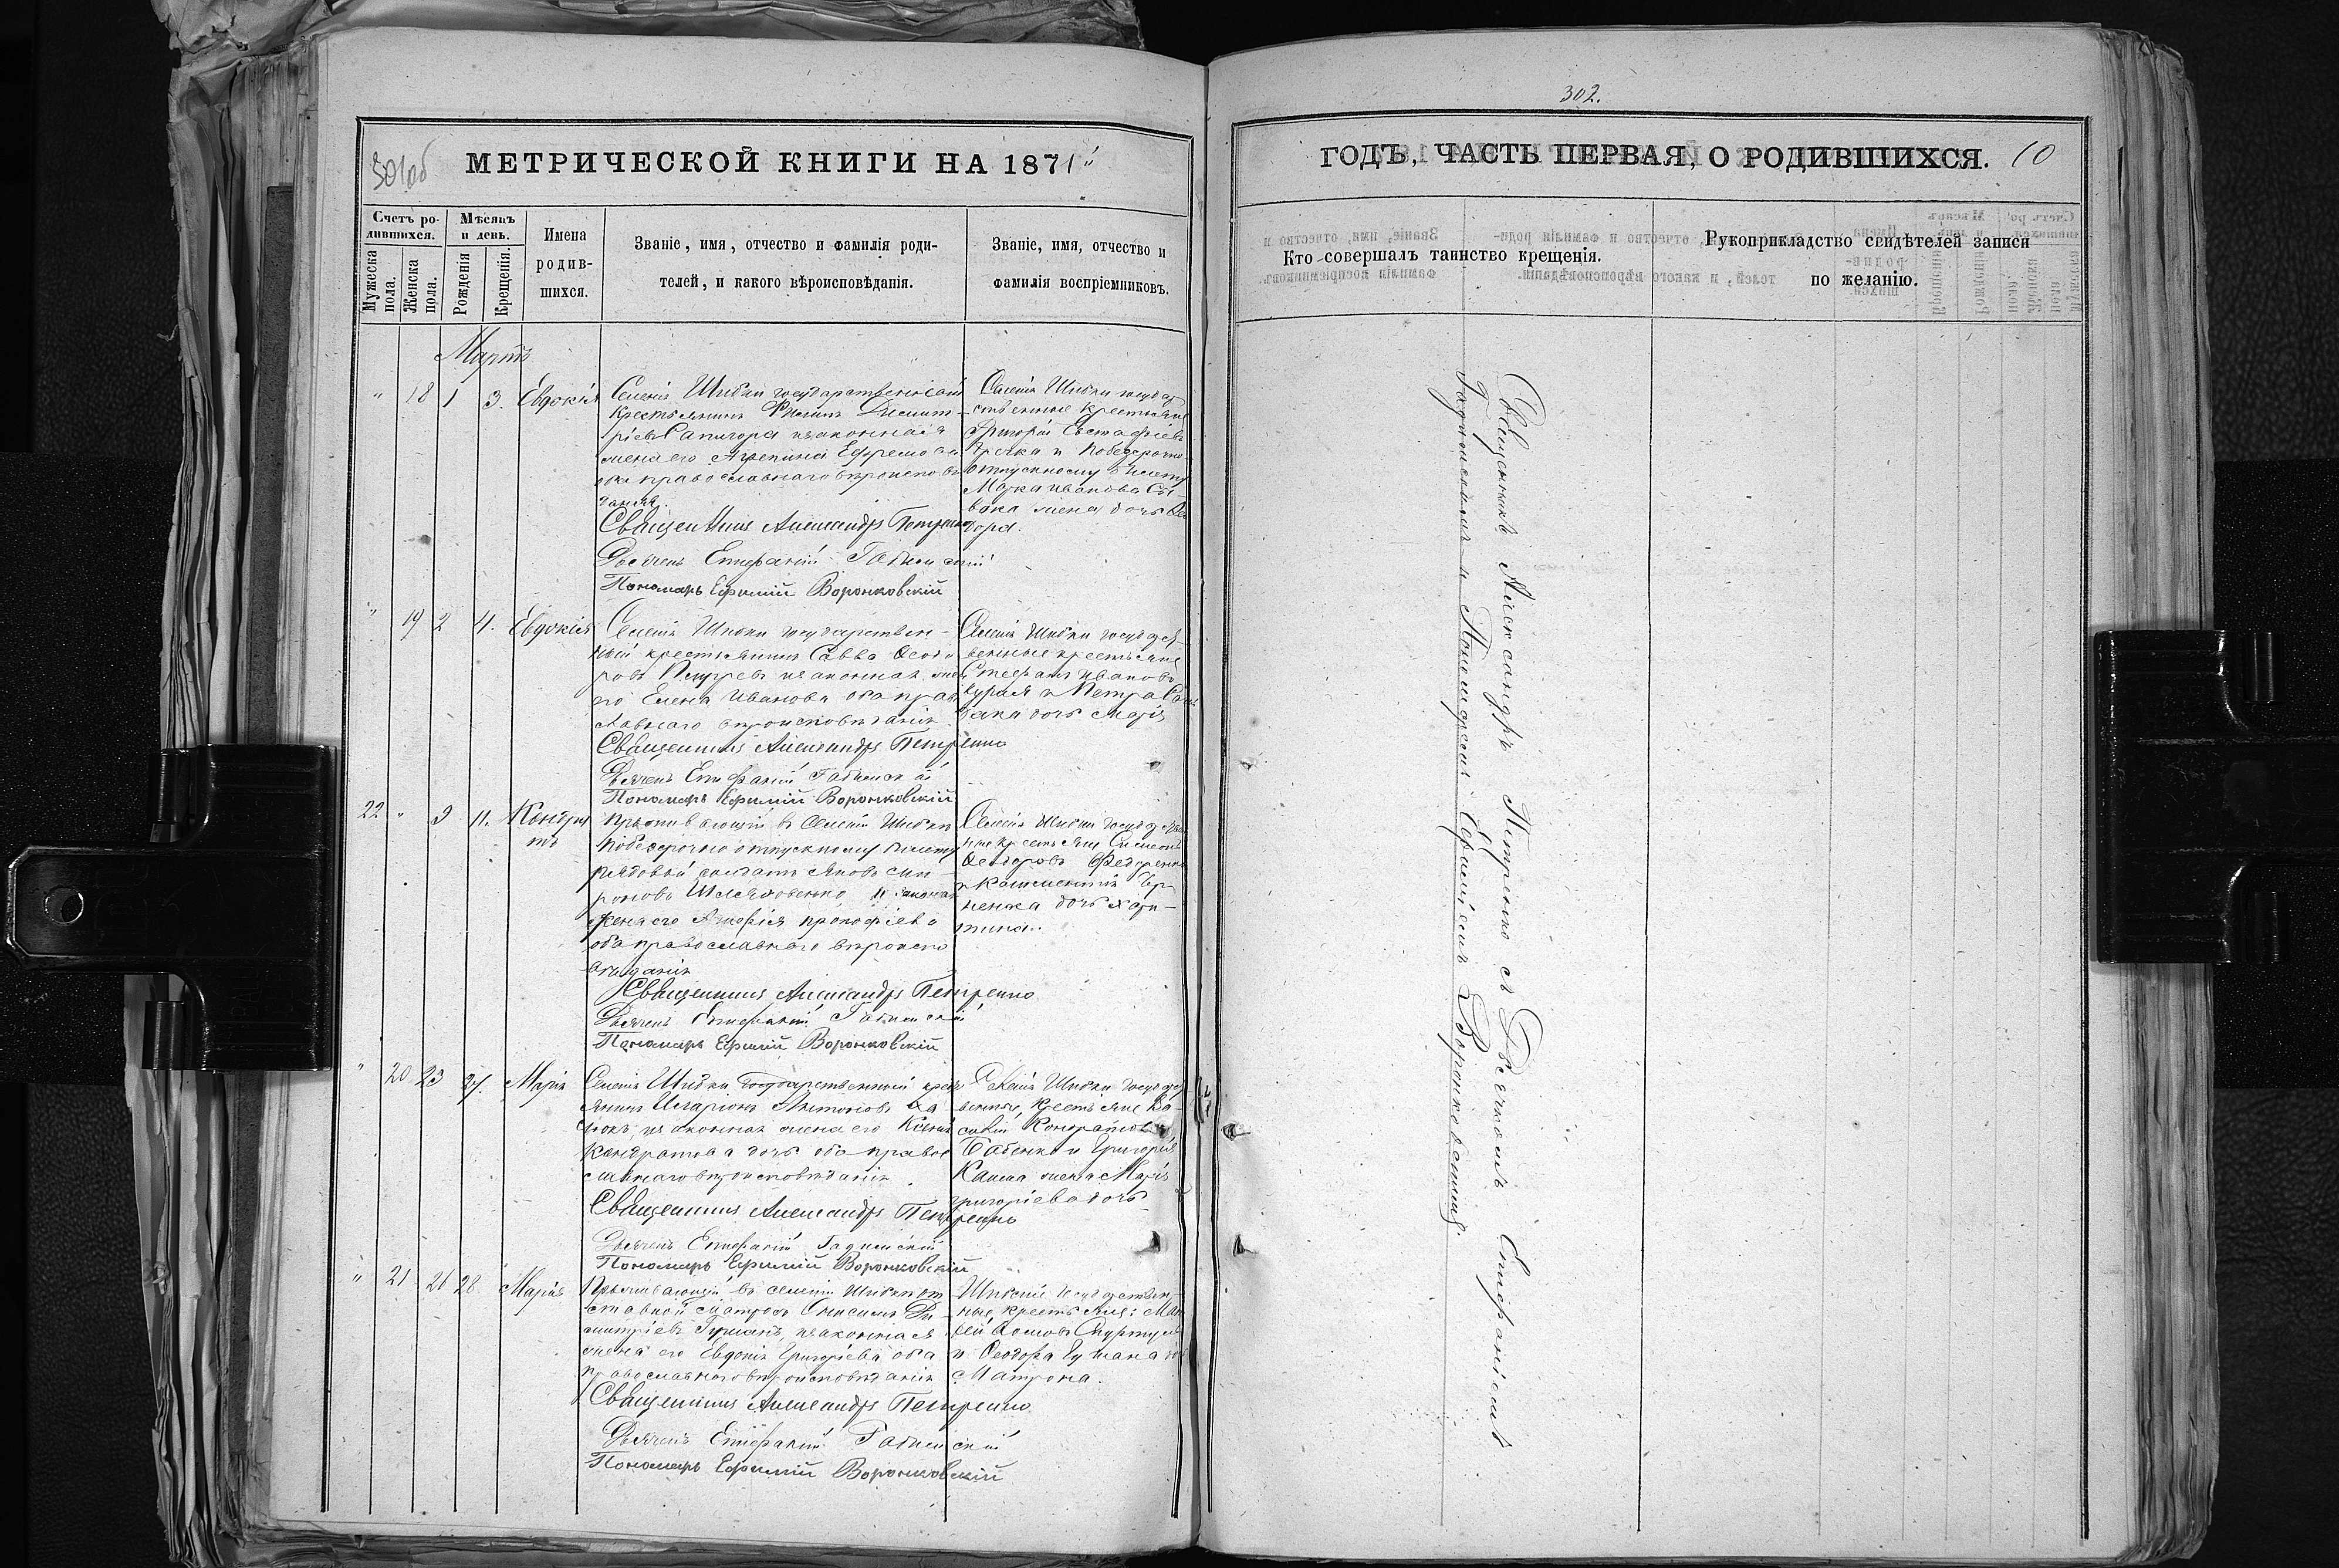 301об
МЕТРИЧЕСКОЙ КНИГИ НА 1871
Счетъ ро-
дившихся.
Мѣсяцъ
и день.
Мужеска пола.
Женска пола.
Рожденія
Крещенія.
Имена
родив-
шихся.
Званіе, имя, отчество и фамилія роди-
телей, и какого вѣроисповѣданія.
Званіе, имя, отчество и
фамилія воспріемниковъ.
Мартъ
" 18 1 3. Евдокія
Селенія Шибки государственный
крестьянинъ Филипъ Димит-
ріевъ Сапигора и законная
жена его Агрепина Ефремова
оба православнаго вѣроисповѣ
данія.
Священникъ Александръ Петренко
Дьячекъ Епифаній
Пономарь Ефимій Воронковскій
Селенія Шибки государ
ственные крестьяне
Григорій Евстафіевъ
и побезсрочно
отпускному билету
Марка Иванова
жена дочь Фео
дора.
" 19 2 4. Евдокія
Селенія Шибки государствен-
ный крестьянинъ Савва Феодо
ровъ и законная жена
его Елена Иванова оба право
славнаго вѣроисповѣданія.
Священникъ Александръ Петренко
Дьячекъ Епифаній
Пономарь Ефимій Воронковскій
Селенія Шибки государ
венные крестьяне
Стефанъ Ивановъ
и Петра
дочь Марія
22 " 9 11. Кондра
тъ
Проживающій в селеніи Шибки
побезсрочно отпускному билету
рядовой солдатъ Яковъ
и законная
жена его Агафія Прокофіева
оба православнаго вѣроиспо
вѣданія
Священникъ Александръ Петренко
Дьячекъ Епифаній
Пономарь Ефимій Воронковскій
Селенія Шибки государствен
ные крестьяне Симеонъ
Феодоровъ Федоренко
и
дочь Хари-
тина.
" 20 23 27. Марія
Селенія Шибки государственный крест
янинъ Иларіонъ Антоновъ
и законная жена его Ксенія
Кондратова дочь оба право
славнаго вѣроисповѣданія.
Священникъ Александръ Петренко
Дьячекъ Епифаній
Пономарь Ефимій Воронковскій
Селенія Шибки государ
венные крестьяне Ва-
силій Кондратовъ
Бабенко и Григорія
жена Марія
Григоріева дочь
" 21 26 28. Марія
Проживающій въ селеніи Шибки от
ставной матросъ Онисимъ Ди-
митріевъ и законная
жена его Евдокія Григоріева оба
православнаго вѣроисповѣданія
Священникъ Александръ Петренко
Дьячекъ Епифаній
Пономарь Ефимій Воронковскій
Шибки государствен-
ные крестьяне:
и Феодора Гумана дочь
Матрона.
302.
ГОДЪ, ЧАСТЬ ПЕРВАЯ, О РОДИВШИХСЯ. 10
Кто совершалъ таинство крещенія.
Рукоприкладство свидѣтелей записи
по желанію.
Священникъ Александръ Петренко съ Дьячкомъ Епифаніемъ
и Пономаремъ Ефиміемъ Воронковскимъ.